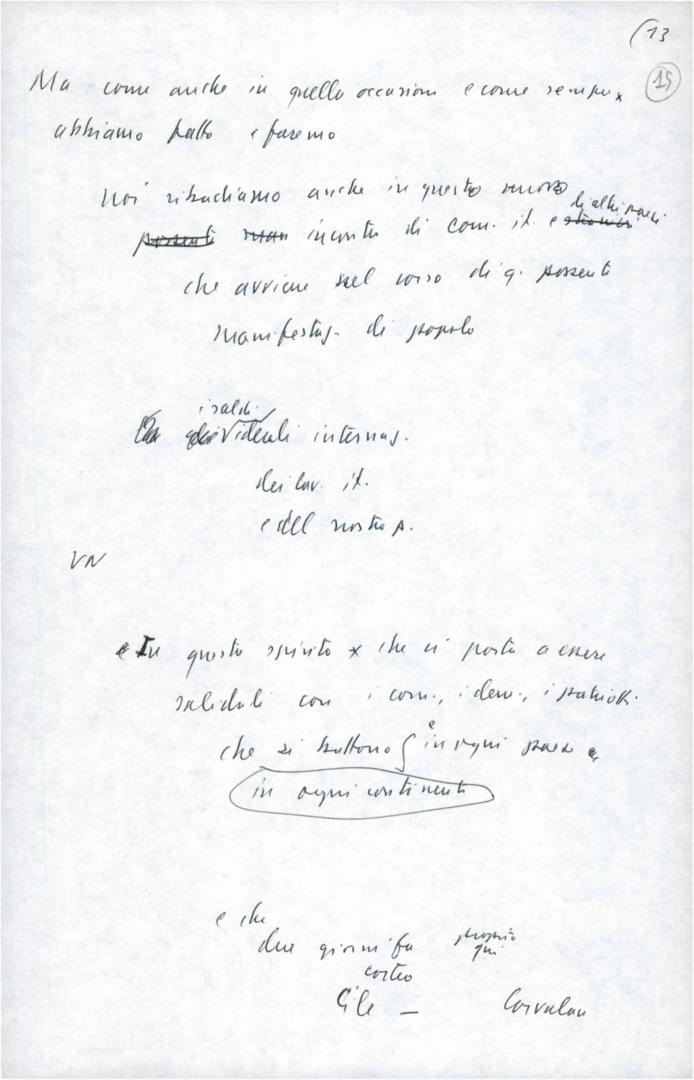 (13
15
Ma come anche in quella occasione e come sempre x
abbiamo fatto e faremo
noi ribadiamo anche in questo nuovo
di altri paesi
possenti incontro di com. it. e stranieri
che avviene nel corso di q. possenti
manifestaz. di popolo
i saldi
videnti internaz.
dei lav. it.
e del nostro p.
VN
e In questo spirito x che ci porta a essere
solidali con i com., i dem., i patrioti
che si battono e in ogni paese e
in ogni continente
e che
due giorni fa proprio
qui
corteo
Cile — Corvalan